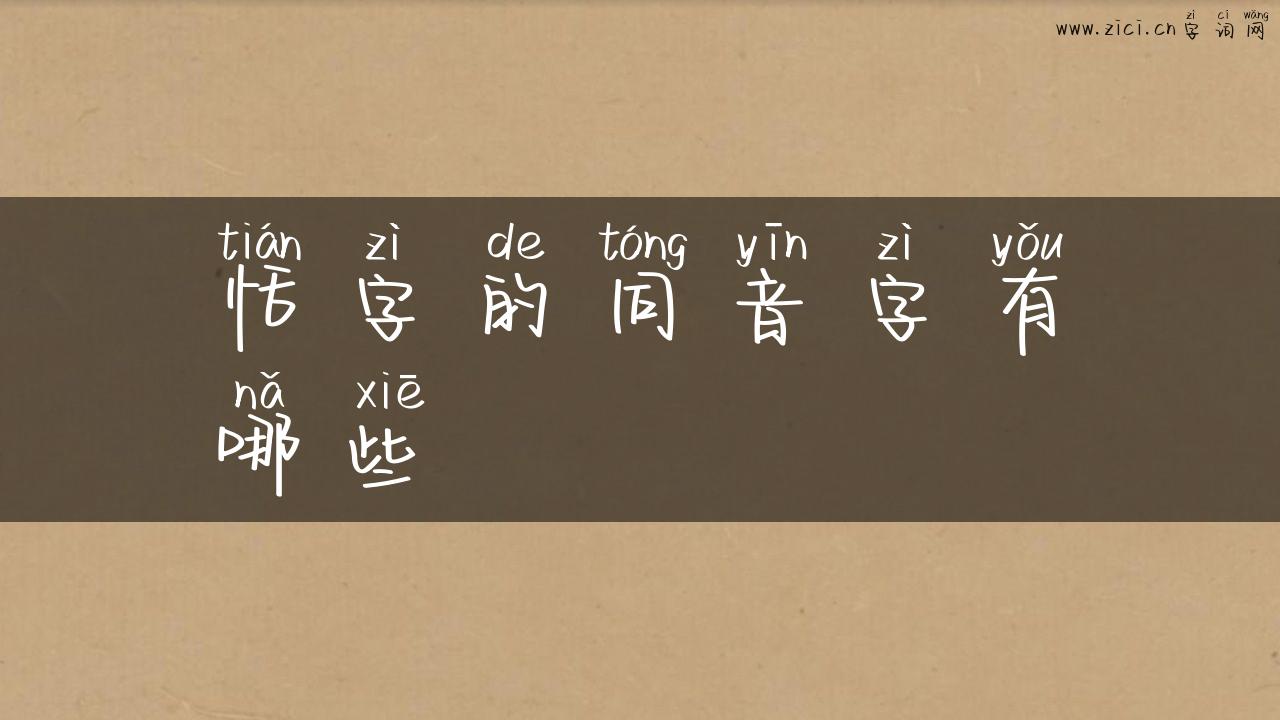 zì cí wǎng
www.zici.cn 字词网
tián zì de tóng yīn zì yǒu
恬字的同音字有
nǎ xiē
哪些